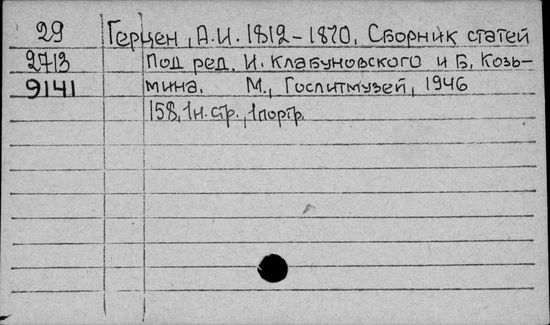 29 Герцен, А.И. 1812-1870, Сборник статей
2713 Под ред. И. Клабуновского и Б. Козь-
9141 мина. М., Гослитмузей, 1946
158, 1н. стр., 1 портр.